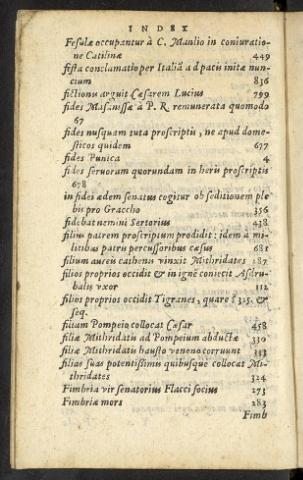 INDEX
Fesulæ occupantur à C. Manlio in coniuratio-
ne Catilinæ 449
festa conclamatio per Italiã ad pacis initæ nun-
cium 836
fictionis arguit Cæsarem Lucius 799
fides Masanissæ à P. R. remunerata quomodo
67
fides nusquam tuta proscriptis, ne apud dome-
sticos quidem 677
fides Punica 4
fides seruorum quorundam in heris proscriptis
678
in fidei ædem senatus cogitur ob seditionem ple
bis pro Graccho 356
fidebat nemini Sertorius 438
filius patrem proscriptum prodidit: idem à mi-
litibus patris percussoribus cæsus 681
filium aureis cathenis vinxit Mithridates 287
filios proprios occidit & in ignẽ coniecit Asdru-
balis vxor 112
filios proprios occidit Tigranes, quare? 325. &
seq.
filiam Pompeio collocat Cæsar 458
filiæ Mithridatis ad Pompeium abductæ 330
filiæ Mithridatis hausto veneno corruunt 333
filias suas potentissimis quibusque collocat Mi-
thridates 324
Fimbria vir senatorius Flacci socius 273
Fimbriæ mors 283
Fimb